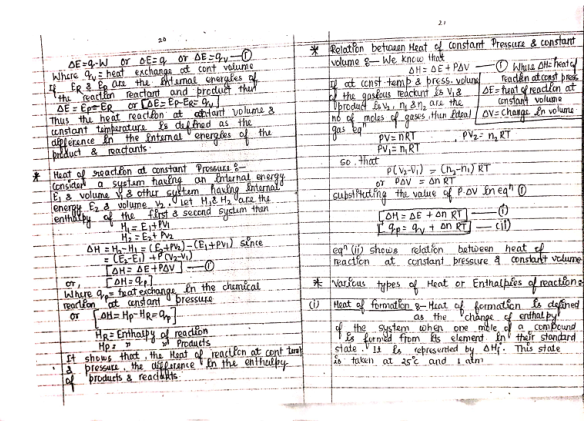 20
ΔE=q-W or ΔE=q or ΔE=qv —①
Where qv = heat exchange at cont volume
If ER & Ep are the internal energies of
the reaction reactant and product then
ΔE = Ep-ER or [ΔE= Ep-ER= qv]
Thus the heat reaction at constant volume &
constant temperature is defined as the
difference in the internal energies of the
product & reactants.
* Heat of reaction at constant Pressure :-
Consider a system having an internal energy
E1 & volume V1 & other system having internal
energy E2 & volume V2. Let H1 & H2 are the
enthalpy of the first & second system then
H1 = E1+PV1
H2 = E2+PV2
ΔH = H2-H1 = (E2+PV2)-(E1+PV1) since
= (E2-E1) +P(V2-V1)
[ΔH= ΔE+PΔV] —①
or, [ΔH= qp]
Where qp= heat exchange in the chemical
reaction at constant pressure
or [ΔH= Hp-HR= qp]
HR= Enthalpy of reaction
Hp= " " Products
It shows that, the Heat of reaction at cont temp
& pressure, the difference in the enthalpy
of products & reactants.
21
* Relation between Heat of constant Pressure & constant
volume :- We know that
ΔH= ΔE+PΔV —① Where ΔH= heat of
reaction at const press
If at const temp & press. volume
of the gaseous reactant is V1 &
product is V2, n1 & n2 are the
no of moles of gases, then ideal
gas eqn
ΔE= heat of reaction at
constant volume
ΔV= Change in volume
PV= nRT
PV2= n2 RT
PV1= n1RT
so that
P(V2-V1) = (n2-n1) RT
or PΔV = Δn RT
substituting the value of P.ΔV in eqn ①
[ΔH = ΔE + Δn RT] —(i)
[qp= qv + Δn RT] —(ii)
eqn (ii) shows relation between heat of
reaction at constant pressure & constant volume
* Various types of Heat or Enthalpies of reaction :-
(i) Heat of formation :- Heat of formation is defined
as the change of enthalpy
of the system when one mole of a compound
is formed from its element in their standard
state. It is represented by ΔHf. This state
is taken at 25°c and 1 atm